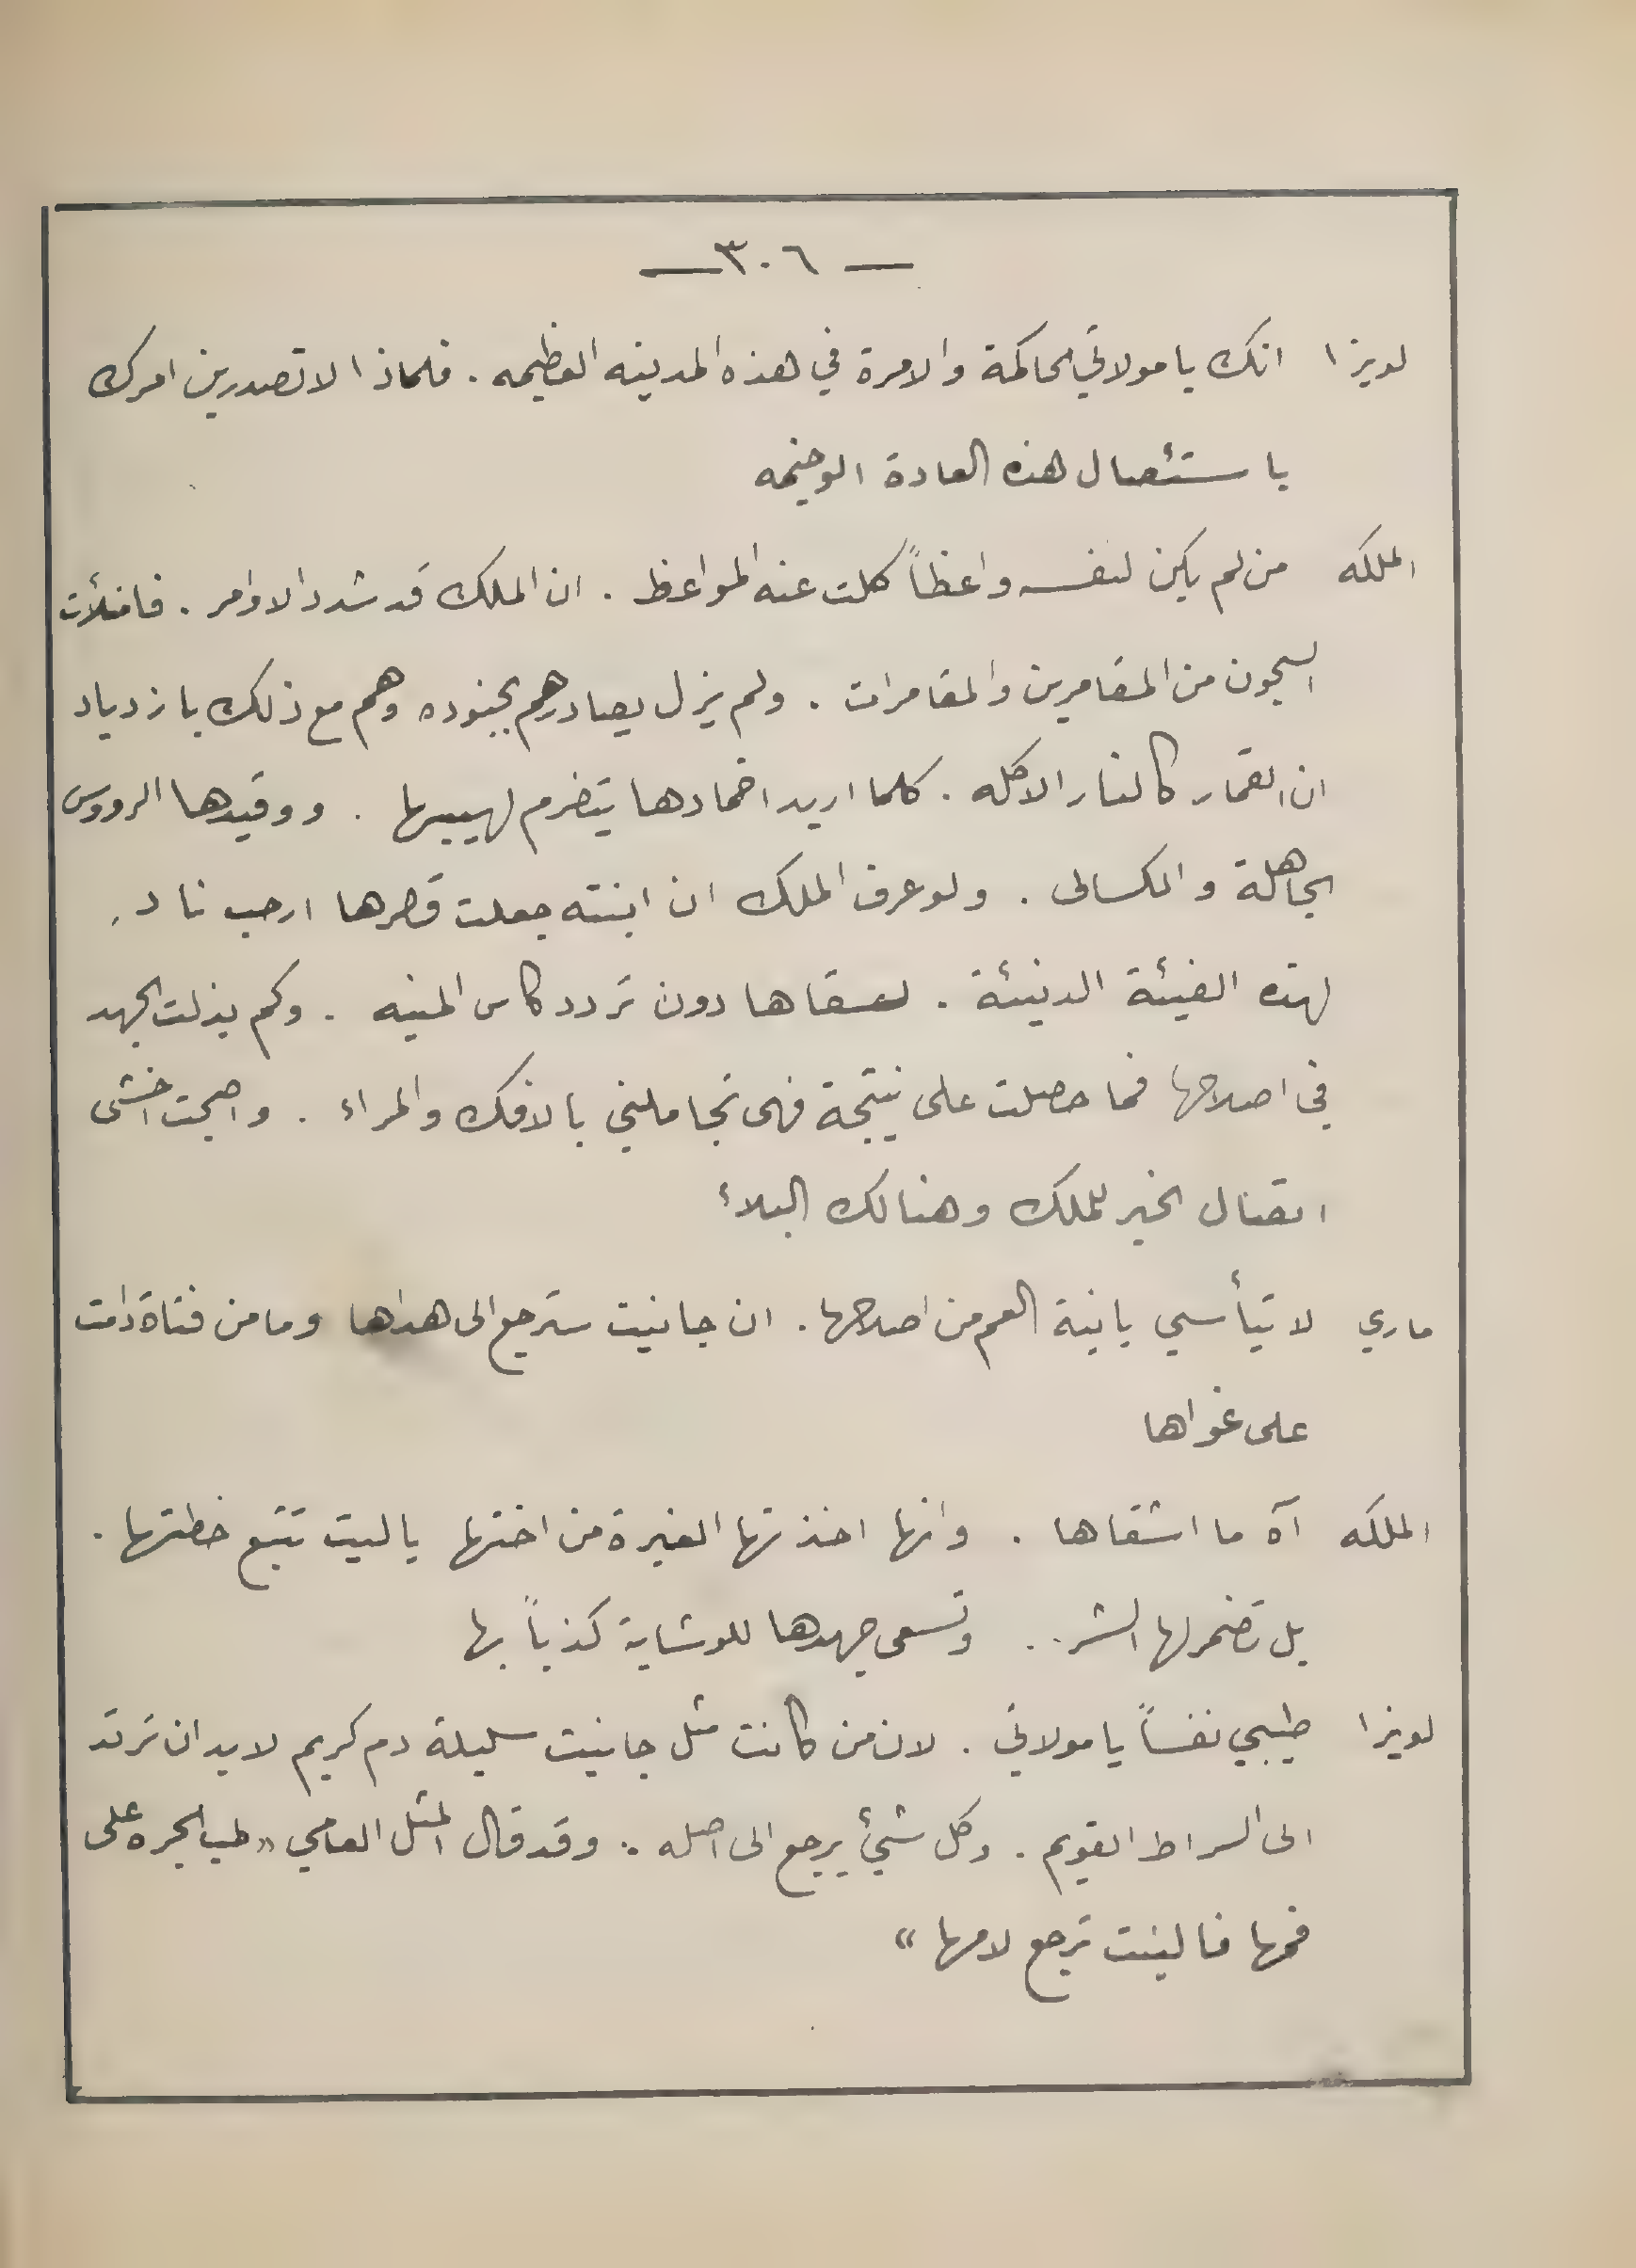 — ٣٠٦ —
لويزا انك يا مولاتي الحاكمة والامرة في هذه المدينه العظيمه . فلماذا لا تصدرين امرك
با ستئصال هذه العادة الوخيمه
الملكه من لم يكن لنفسه واعظاً كلت عنه المواعظ . ان الملك قد شدد الاوامر . فامتلأت
السجون من المقامرين والمقامرات . ولم يزل يصادرهم بجنوده وهم مع ذلك بازدياد
ان القمار كالنار الاكله . كلما اريد اخمادها يتضرم لهيبها . ووقيدها الرووس
الجاهلة والكسالى . ولو عرف الملك ان ابنته جعلت قصرها ارحب ناد
لهذه الفيئة الدنيئة . لسقاها دون تردد كاس المنيه . وكم بذلت الجهد
في اصلاحها فما حصلت على نيتجة فهى تجاملني بالافك والمراء . واصبحت اخشى
اتصال الخبر للملك وهنالك البلاء
ماري لا تيأسي يابنة العم من اصلاحها . ان جانيت سترجع الى هداها وما من فتاة دامت
على غواها
الملكه آه ما اشقاها . وانها اخذتها الغيرة من اختها ياليت تتبع خطتها .
بل تضمر لها الشر .. وتسعى جهدها للوشاية كذباً بها
لويزا طيبي نفساً يا مولاتي . لان من كانت مثل جانيت سليلة دم كريم لابد ان ترتد
الى السراط القويم . وكل شيئ يرجع الى اصله . وقد قال المثل العامي « طب الجره على
فمها فالبنت ترجع لامها »